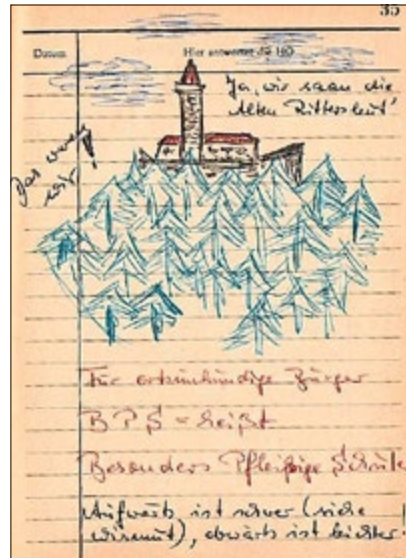 35
Datum
Hier antwortet die HO
Ja, wir saan die
alten Rittersleut'
Das waren
wir!
Für ortsunkundige Bürger
BPS = heißt
Besonders Pfleißige Schule
Aufwärts ist schwer (siehe
Wismut), abwärts ist leichter.